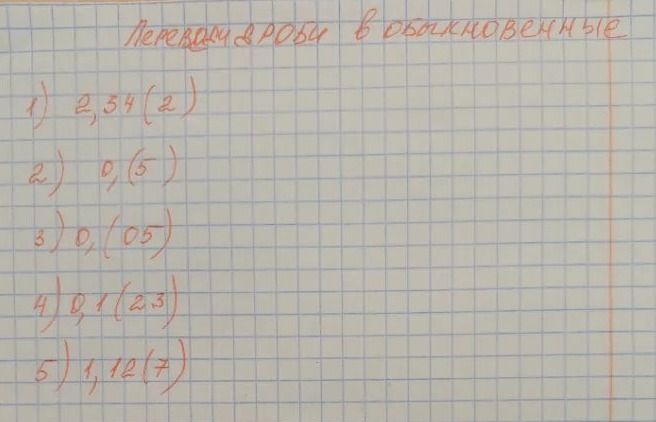 Переводи дроби в обыкновенные
1) 2,34(2)
2) 0,(5)
3) 0,(05)
4) 0,1(23)
5) 1,12(7)